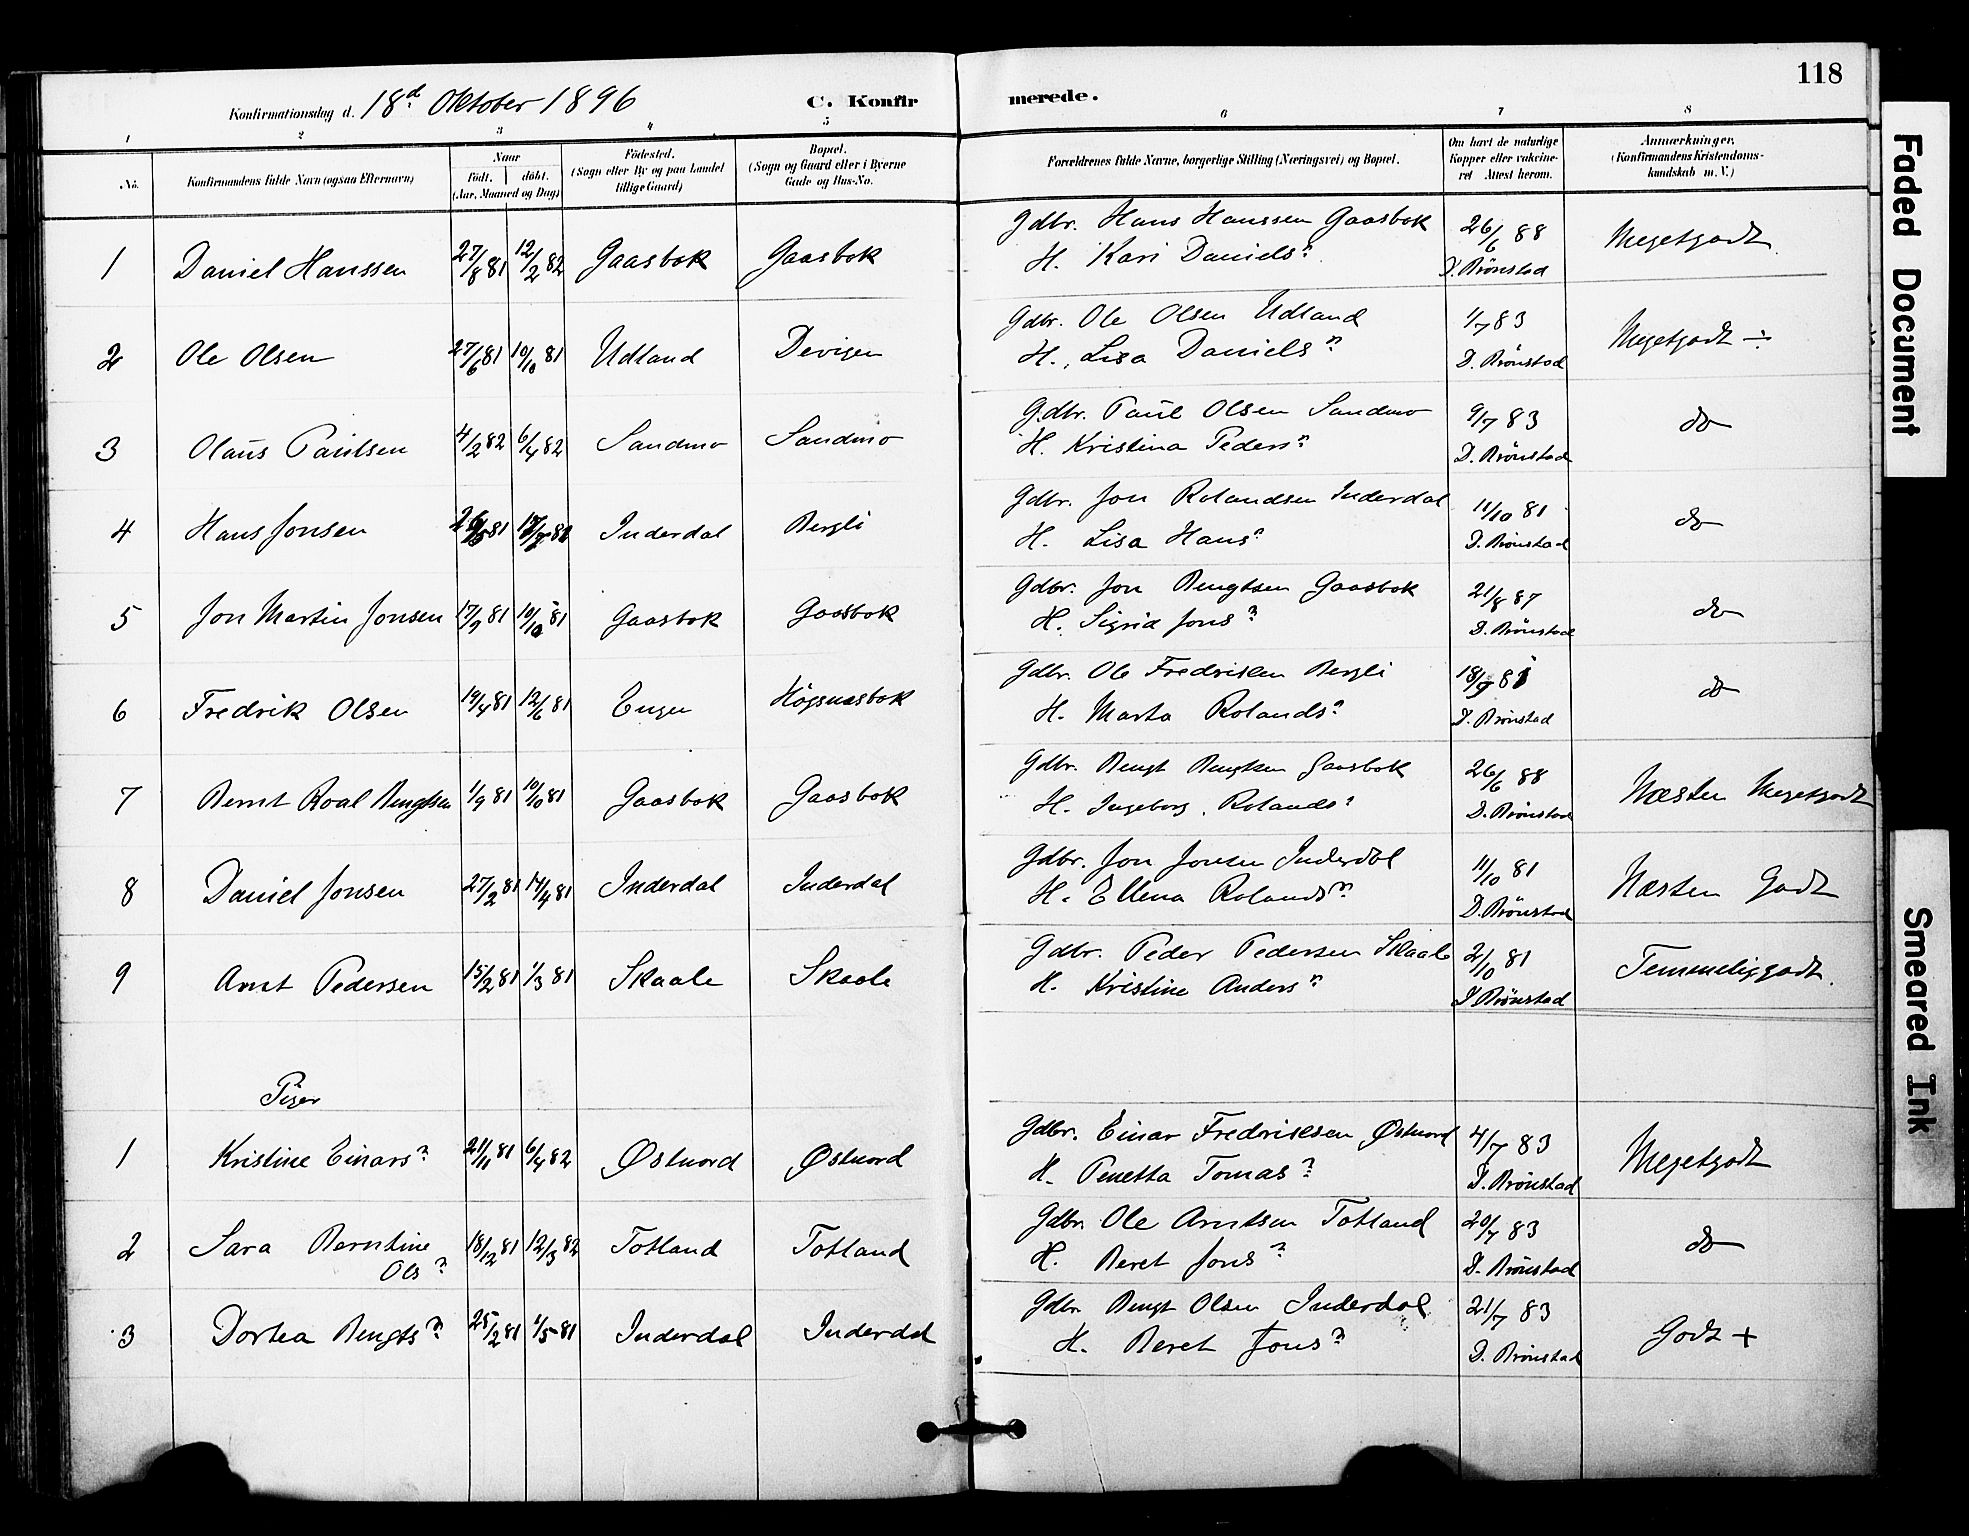 118
Konfirmationsdag d. 18d. Oktober 1896 C. Konfirmerede.
1 2 3 4 5 6 7 8
No. Konfirmandens fulde Navn (ogsaa Efternavn) Naar Födt. döbt. (Aar, Maaned og Dag) Födested. (Sogn eller By og paa Landet tillige Gaard) Bopæl. (Sogn og Gaard eller i Byerne Gade og Hus-No. Forældrenes fulde Navne, borgerlige Stilling (Næringsvei) og Bopæl. Om havt de naturlige Kopper eller vakcineret Attest herom. Anmærkninger, (Konfirmandens Kristendomskundskab m. V.)
1 Daniel Hanssen 27/8 81 12/2 82 Gaasbok Gaasbok Gdbr. Hans Hanssen Gaasbok 26/6 88 Megetgodt
H. Kari Daniels? D. Brönstad
2 Ole Olsen 27/6 81 10/10 81 Udland Devigen Gdbr. Ole Olsen Udland 1/7 83 Megetgodt ÷
H. Lisa Daniels n D. Brönstad
3 Olaus Paulsen 4/2 82 6/4 82 Sandmo Sandmo Gdbr. Paul Olsen Sandmo 9/7 83 do
H. Kristina Peders n D. Brönstad
4 Hans Jonsen 26/5 81 Inderdal Bergli Gdbr. Jon Rolandsen Inderdal 11/10 81 do
H. Lisa Hans? D. Brönstad
5 Jon Martin Jonsen 17/9 81 10/10 81 Gaasbok Gaasbok Gdbr. Jon Bengtsen Gaasbok 21/8 87 do
H. Sigrid Jons? D. Brönstad
6 Fredrik Olsen 14/4 81 12/6 81 Engen Högsnesbok Gdbr. Ole Fredriksen Bergli 18/9 81 do
H. Marta Rolands? D. Brönstad
7 Bernt Roal Bengtsen 1/9 81 10/10 81 Gaasbok Gaasbok Gdbr. Bengt Bengtsen Gaasbok 26/6 88 Næsten Megetgodt
H. Ingeborg Rolands? D. Brönstad
8 Daniel Jonsen 27/2 81 14/4 81 Inderdal Inderdal Gdbr. Jon Jonsen Inderdal 11/10 81 Næsten Godt
H. Ellena Rolands n D. Brönstad
9 Arnt Pedersen 15/2 81 1/3 81 Skaale Skaale Gdbr. Peder Pedersen Skaale 2/10 81 Temmeliggodt.
H. Kristine Anders n D. Brönstad
Piger
1 Kristine Einars? 21/11 81 6/4 82 Østnord Østnord Gdbr. Einar Fredriksen Østnord 4/7 83 Megetgodt
H. Penetta Tomas? D. Brönstad
2 Sara Berntine 18/12 81 12/3 82 Totland Totland Gdbr. Ole Arntsen Totland 20/7 83 do
Ols? H. Beret Jons? D. Brönstad
3 Dortea Bengts? 25/2 81 1/5 81 Inderdal Inderdal Gdbr. Bengt Olsen Inderdal 21/7 83 Godt +
H. Beret Jons? D. Brönstad
Faded Document
Smeared Ink